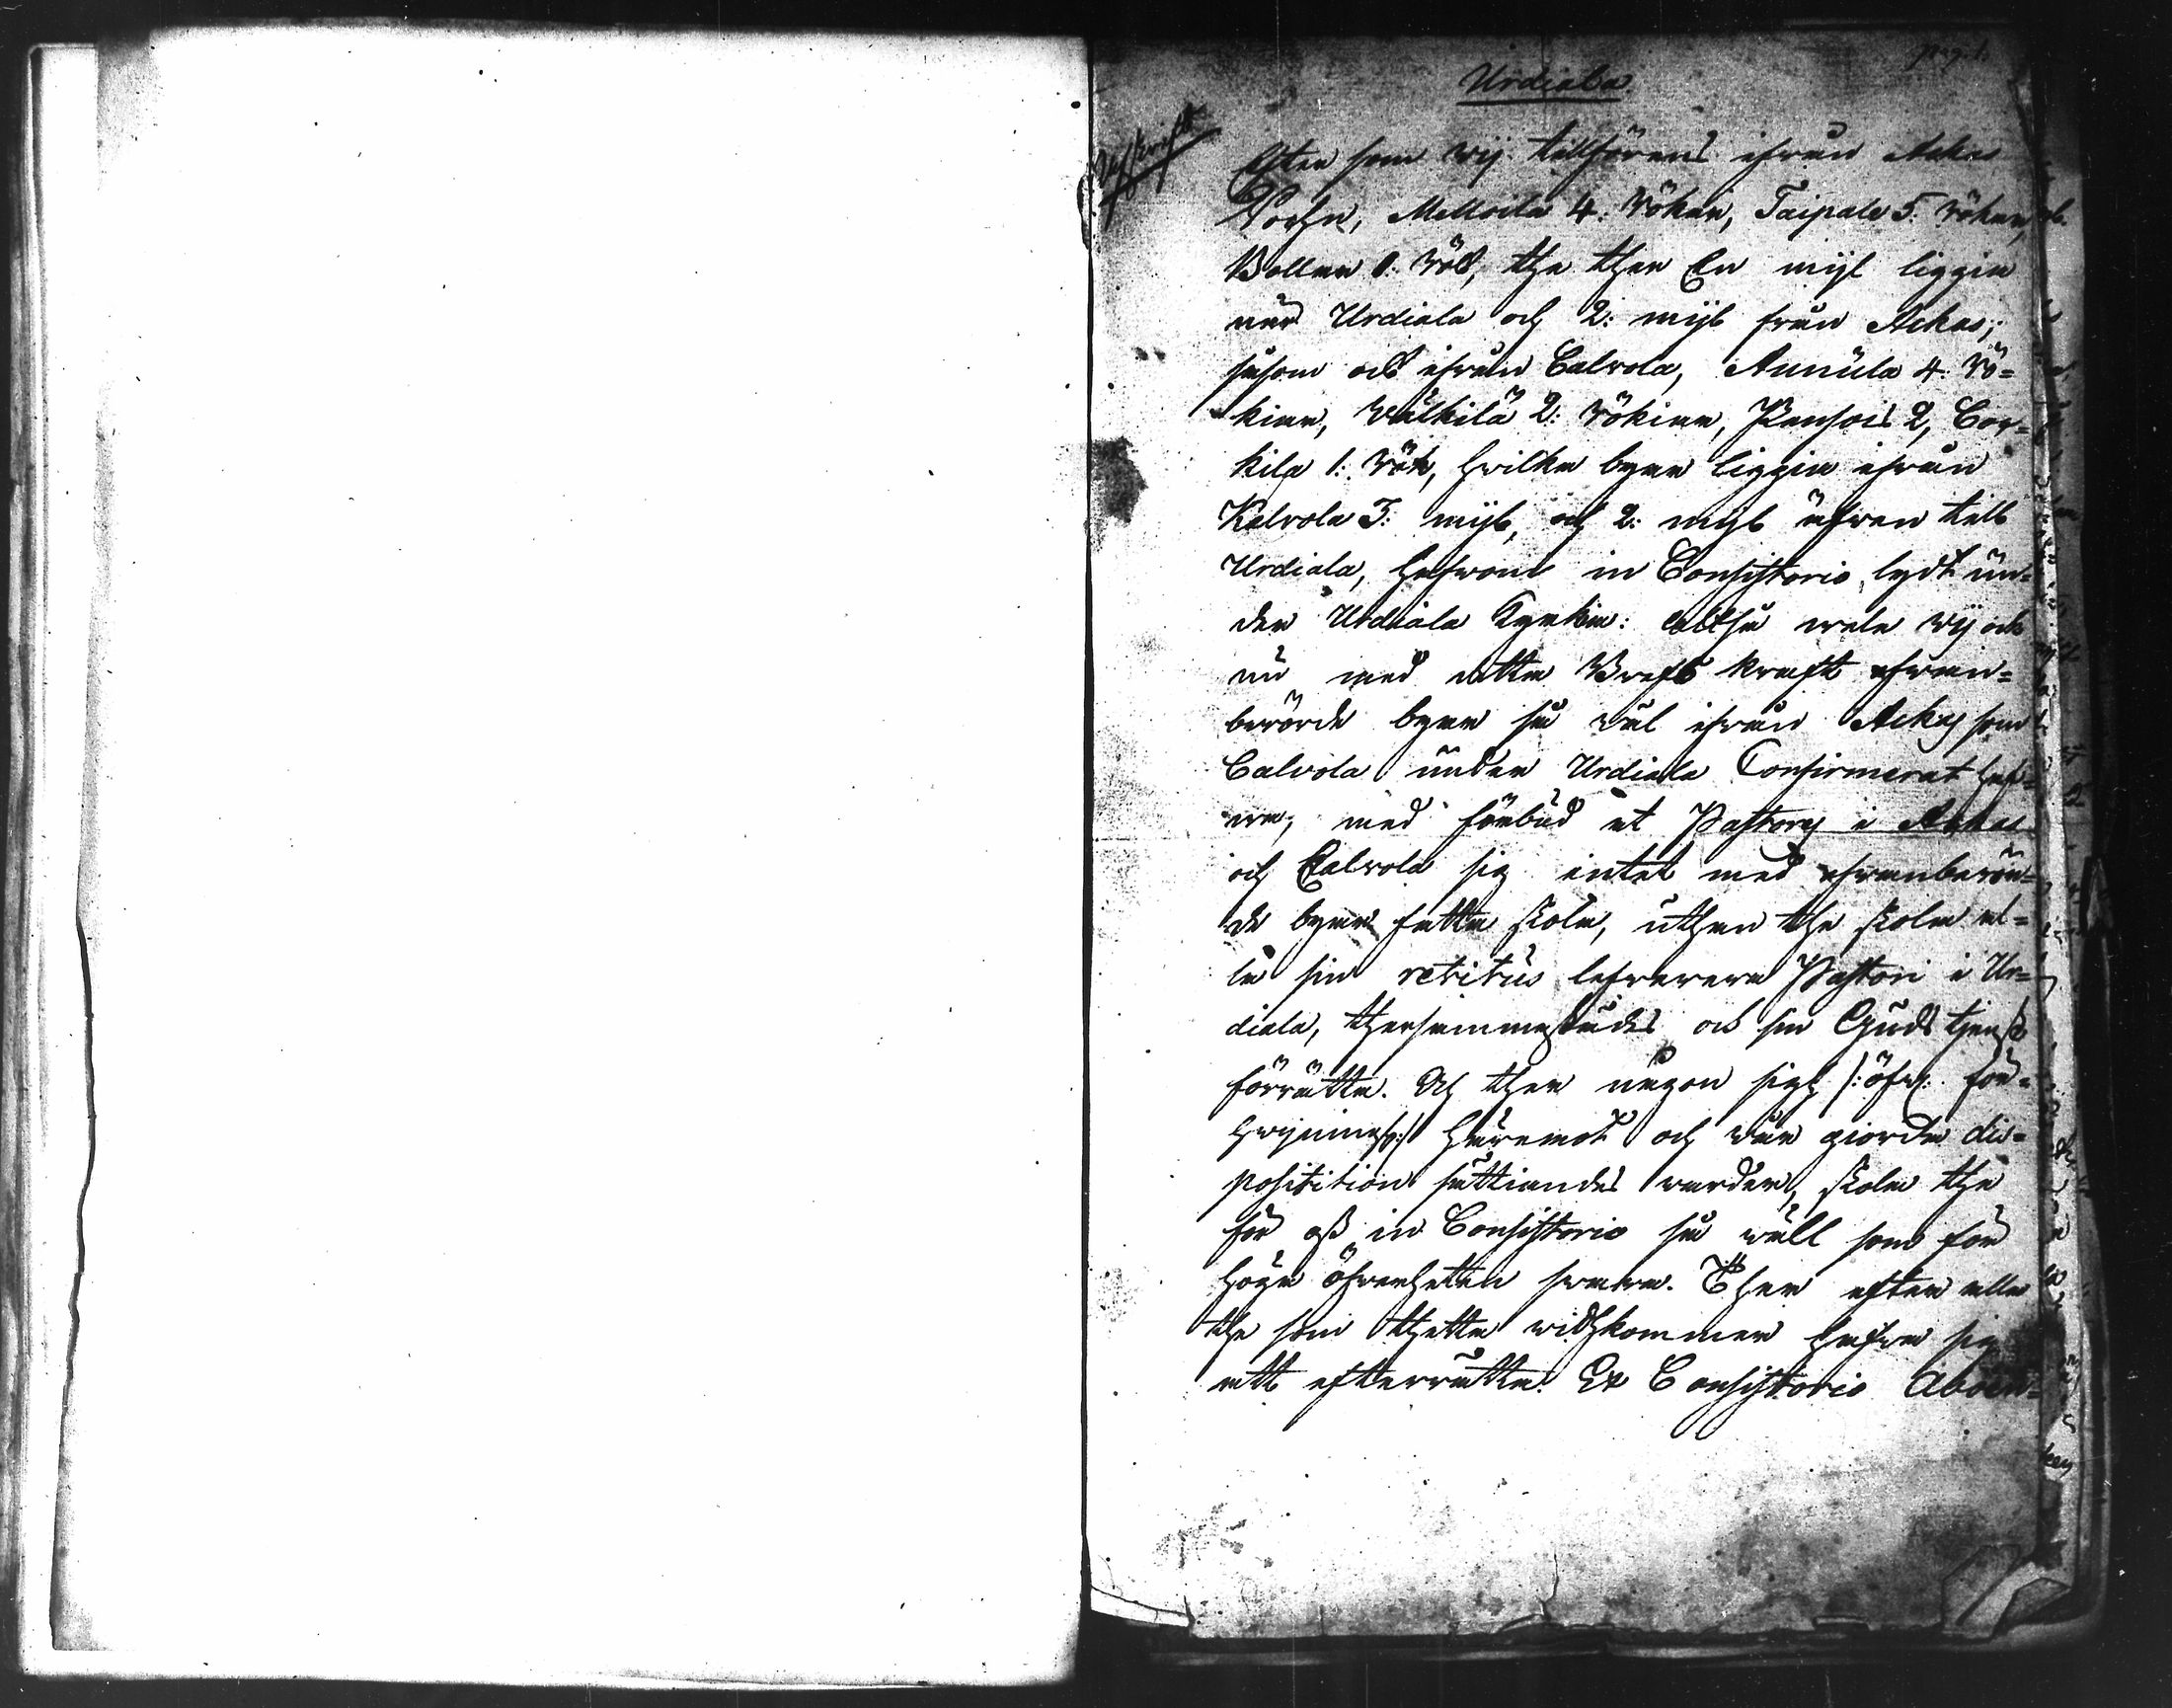 pag. 1.
Urdiala
Afskrift
Efter som wij tillförene ifrån Ackas
Sochn, Melloila 4: rökar, Taipale 5: rökar,
1: rök, the ther En mijl liggia
när Urdiala och 2: mijl från Ackas;
såsom ock ifrån Calvola, Annula 4: rö=
kiar, Wälkilä 2: rökiar, Kensois 2, Cor=
kila 1: rök, hvilka byar liggia ifrån
Kalvola 3: mijl, och 2: mijl äfwen till
Urdiala, hafwom in Consistorio lydt un=
der Urdiala Kyrkia: altså wele wij ock
nu med detta Brefs kraft ofwan=
berörde byar så wäl ifrån Ackas som
Calvola under Urdiala Confirmerat haf=
wa, med förbud at Pastores i Ackas
och Calvola sig intet med ofwanberör=
de byar fatta skola, uthan the skola al=
la sin retitus lefwerera Pastori i Ur=
diala, thersammastädes ock sin Guds tjenst
förrätta. Och ther någon sigh /: öfwer för=
/ häremot och wår giorda dis=
position sättiandes warder, skola the
för oss in Consistorio så wäll som för
höga öfwerheten swara. Ther efter alla
the som thetta widhkommer hafwa sig
att efterrätta. Ex Consistorio Aboen=